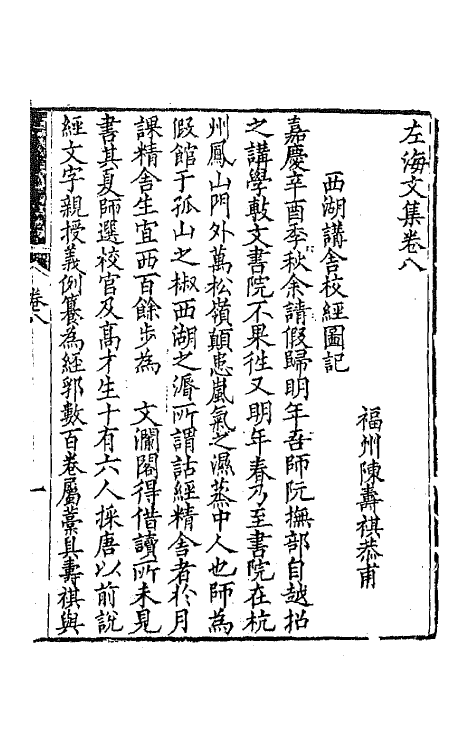 左海文集卷八
福州陳壽祺恭甫
西湖講舍校經圖記
嘉慶辛酉季秋余請假歸明年吾師阮撫部自越招
之講學敷文書院不果徃又明年春乃至書院在杭
州鳳山門外萬松嶺顛患嵐氣之濕蒸中人也師為
假館于孤山之椒西湖之漘所謂詁經精舍者於月
課精舍生宜西百餘步為　文瀾閣得借讀所未見
書其夏師選校官及高才生十有六人採唐以前說
經文字親授義例纂為經郛數百卷屬藁具壽祺與
卷八
一